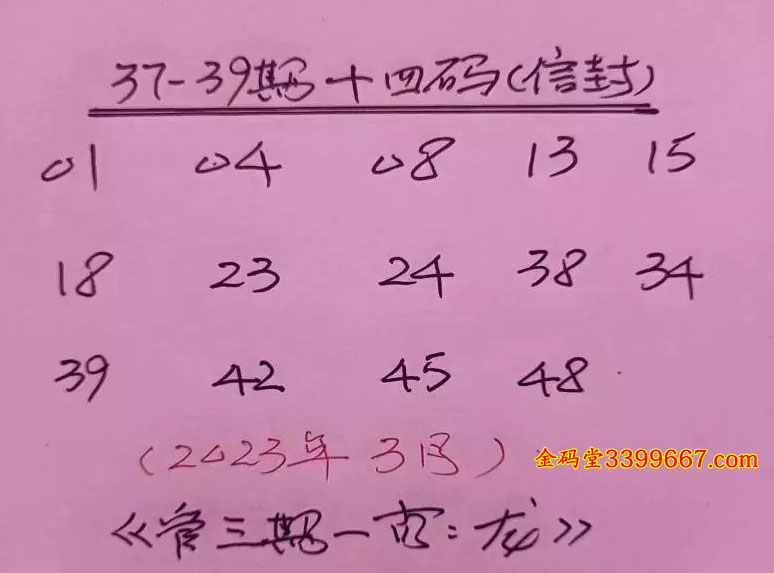 37-39期十四码(信封)
01 04 08 13 15
18 23 24 38 34
39 42 45 48
(2023年3月)
金码堂3399667.com
《管三期一肖:龙》